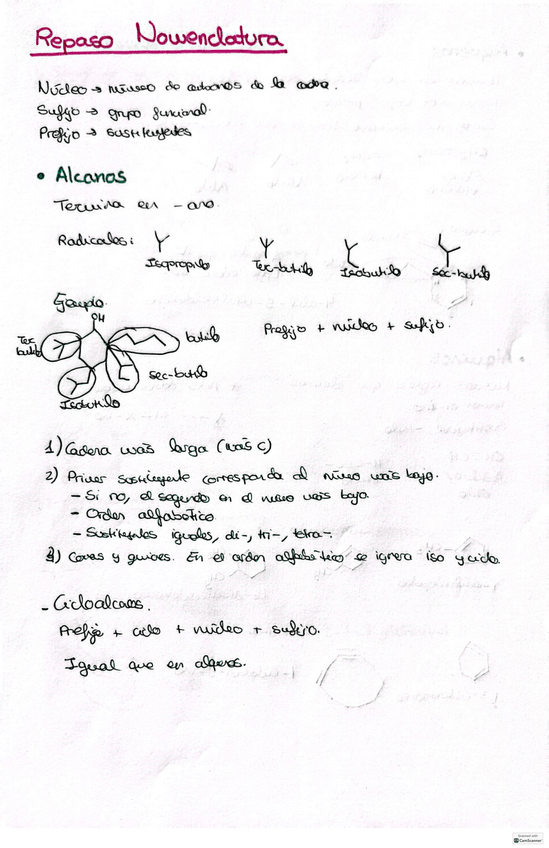 Repaso Nomenclatura
Núcleo → número de carbonos de la cadena.
Sufijo → grupo funcional.
Prefijo → sustituyentes
• Alcanos
Termina en -ano.
Radicales:
Isopropilo Terc-butilo Isobutilo Sec-butilo
Ejemplo.
OH
Terc butilo
butilo
sec-butilo
Isobutilo
Prefijo + núcleo + sufijo.
1) Cadena más larga (más C)
2) Primer sustituyente corresponda al número más bajo.
- Si no, el segundo en el número más bajo
- Orden alfabético
- Sustituyentes iguales, di-, tri-, tetra-.
3) Comas y guiones. En el orden alfabético se ignora iso y ciclo.
- Cicloalcanos.
Prefijo + ciclo + núcleo + sufijo.
Igual que en alquenos.
Scanned with
CamScanner